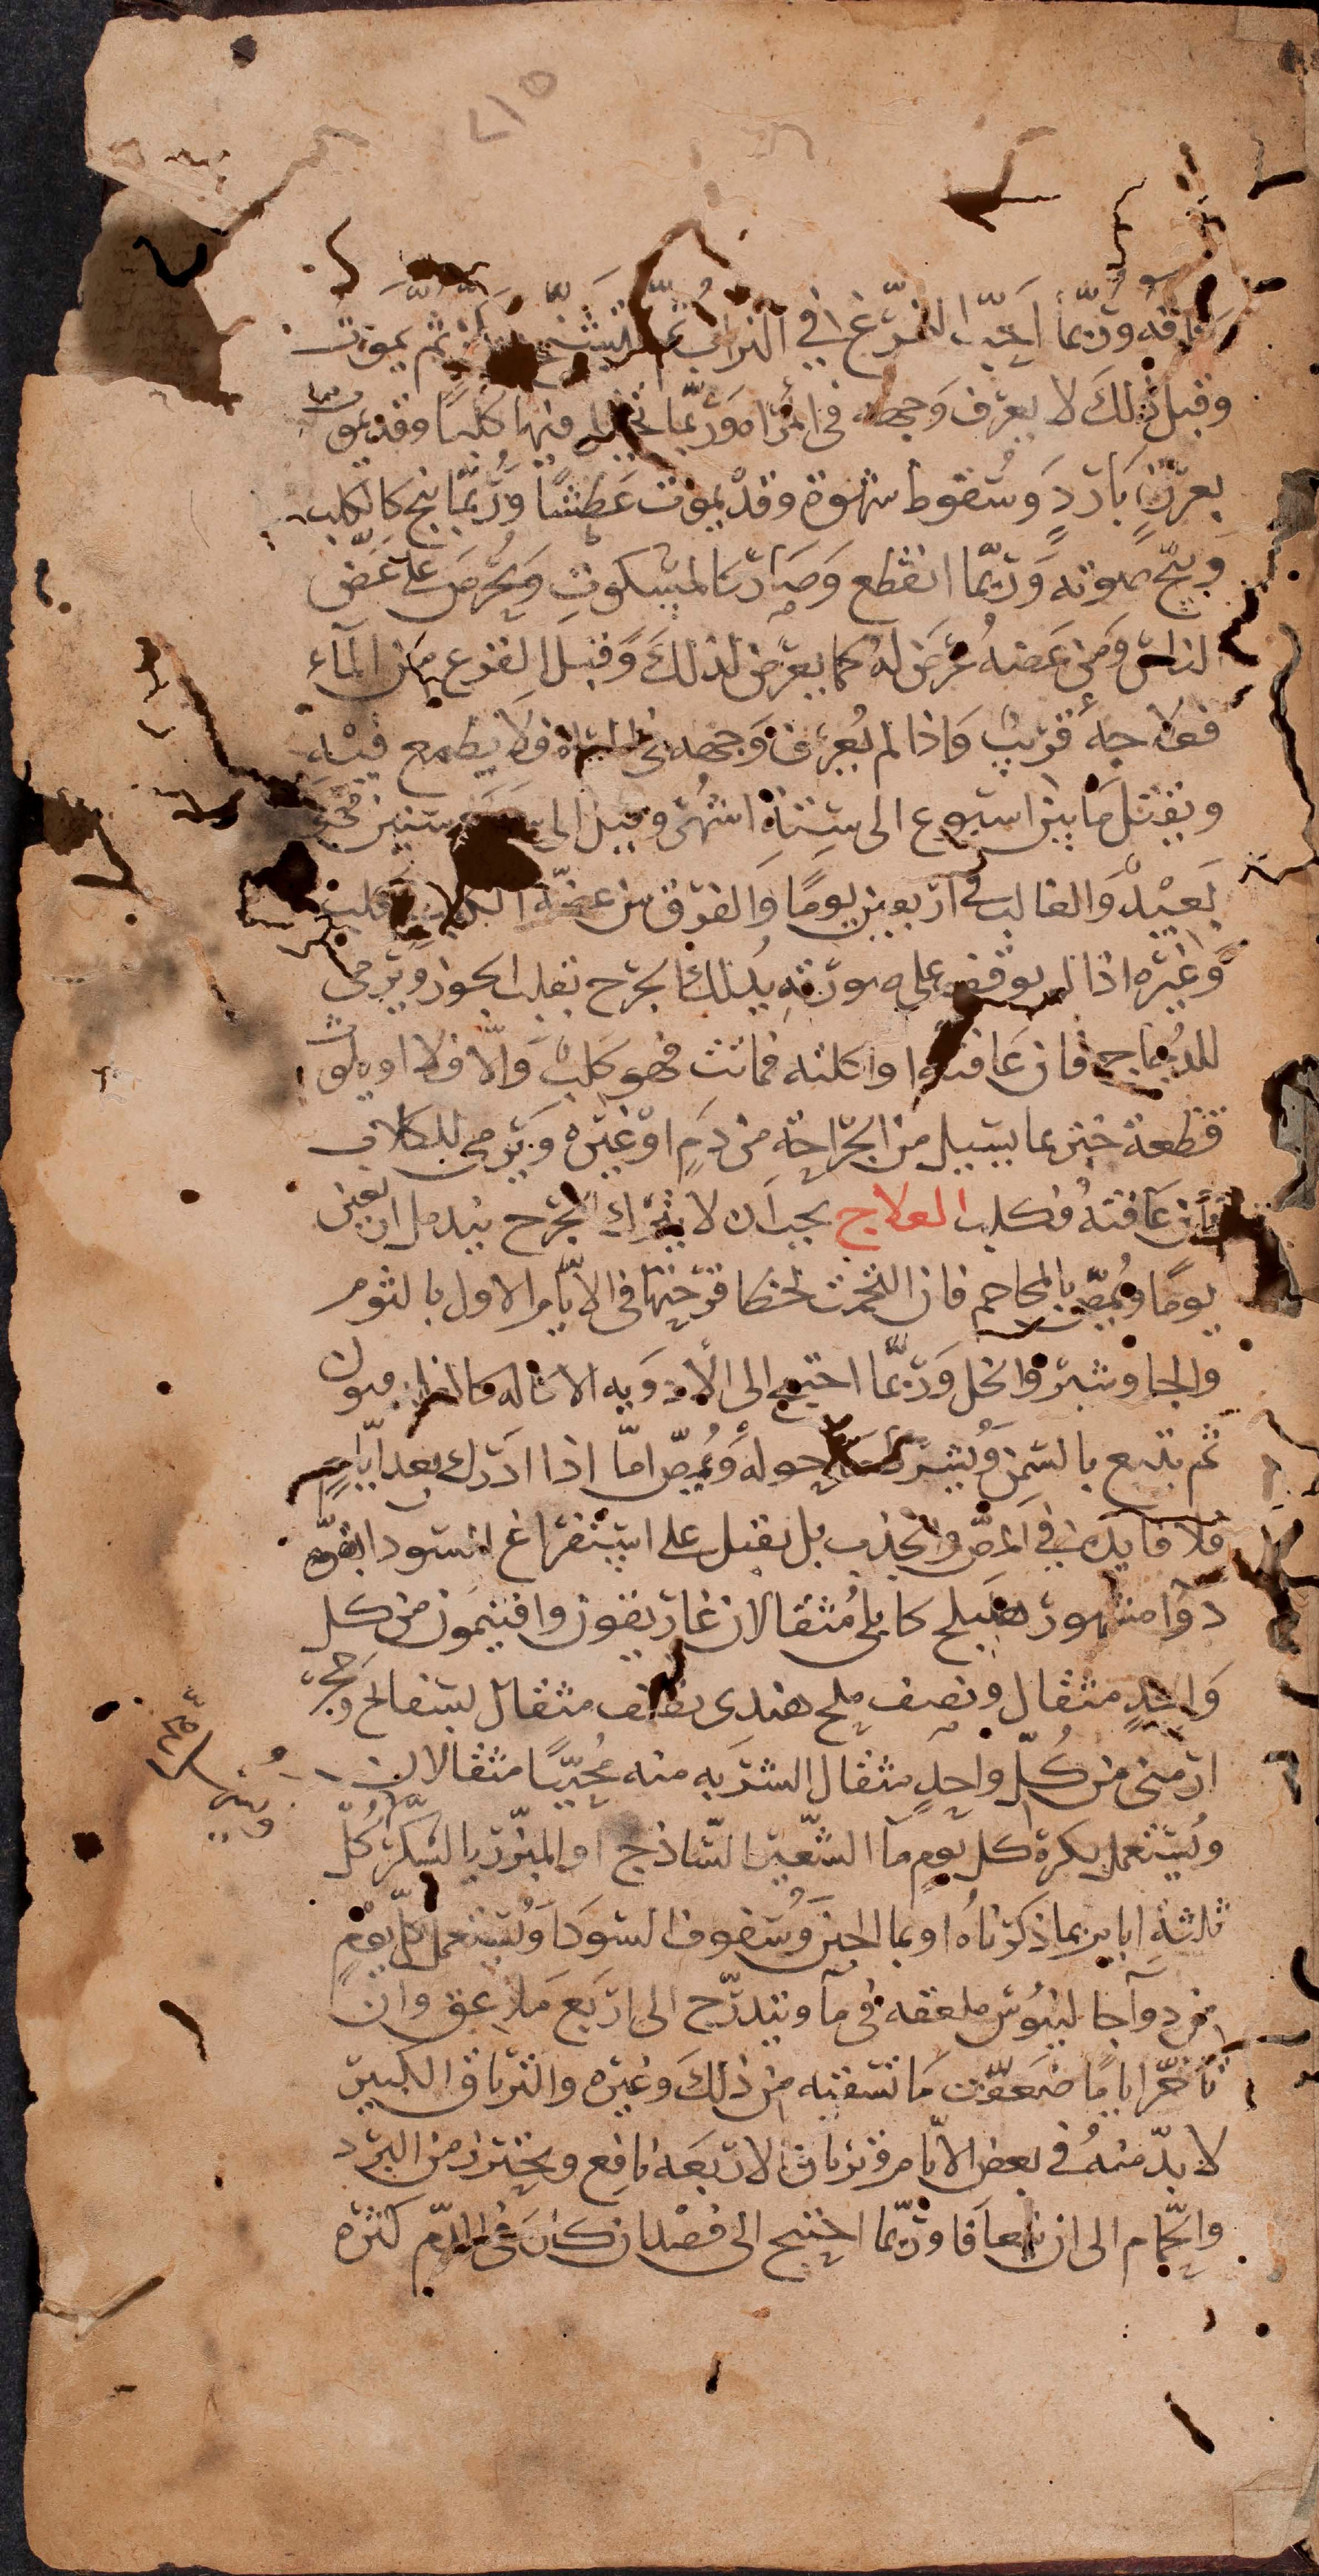 ٧١٥
وربما احبّ التمرّغ في التراب ثم يتشنج ثم يموت
وقبل ذلك لا يعرف وجهه في المرآة وربّما تخيل فيها كلبًا وقد يموت
بعرقٍ باردٍ وسقوط شهوة وقد يموت عطشًا وربّما نبح كالكلب
وبحّ صوته وربّما انقطع وصار كالمسكوت ويحرص على عضّ
الناس ومن عضه عرض له كما يعرض لذلك وقبل الفزع من الماء
فعلاجه قريب واذا لم يعرف وجهه في المرآة فلا يطمع فيه
ويقتل ما بين اسبوع الى ستة اشهر وقيل الى سنين
بعيد والغالب في اربعين يومًا والفرق بين عضّة الكلب الكلِب
وغيره اذا لم يوقف على صورته يدلك الجرح بقلب الجوز ويرمى
للدجاج فان عافته او اكلته فماتت فهو كلِب والّا فلا او يلوث
قطعة خبز بما يسيل من الجراحة من دمٍ او غيره ويرمى للكلاب
فان عافته فكلب العلاج يجب ان لا يترك الجرح يندمل اربعين
يومًا ويُمصّ بالمحاجم فان التحمت لخطا قرحتها في الايّام الاول بالثوم
والجاوشير والخل وربّما احتيج الى الادويه الاكاله كالفلدفيون
ثم يتبع بالسمن ويُشرط حوله ويُمصّ امّا اذا ادرك بعد ايّامٍ
فلا فايده في المصّ والجذب بل يقبل على استفراغ السودا بقوّه
دوا مشهور هليلج كابلى مثقالان غاريقون وافتيمون من كل
واحدٍ مثقال ونصف ملح هندى نصف مثقال بسفايج وحجر
ارمنى من كُلّ واحدٍ مثقال الشربه منه مُحبّبًا مثقالان
ويُستعمل بكرة كل يوم مآ الشّعير السّاذج او المبزّر بالسّكر كُلّ
ثلثة ايام بما ذكرناه او بما الجبن وسفوف السودا ويُستعمل كلّ يومٍ
من دوآ جالينوس ملعقه في مآ ويتدرّج الى اربع ملاعق وان
تاخّر ايامًا ضعفت ما تسقيه من ذلك وغيره والترياق الكبير
لا بدّ منه في بعض الايّام وترياق الاربعه نافع ويحترز من البرد
والحمّام الى ان يتعافا وربّما احتيج الى فصد ان كان في الدّم كثره